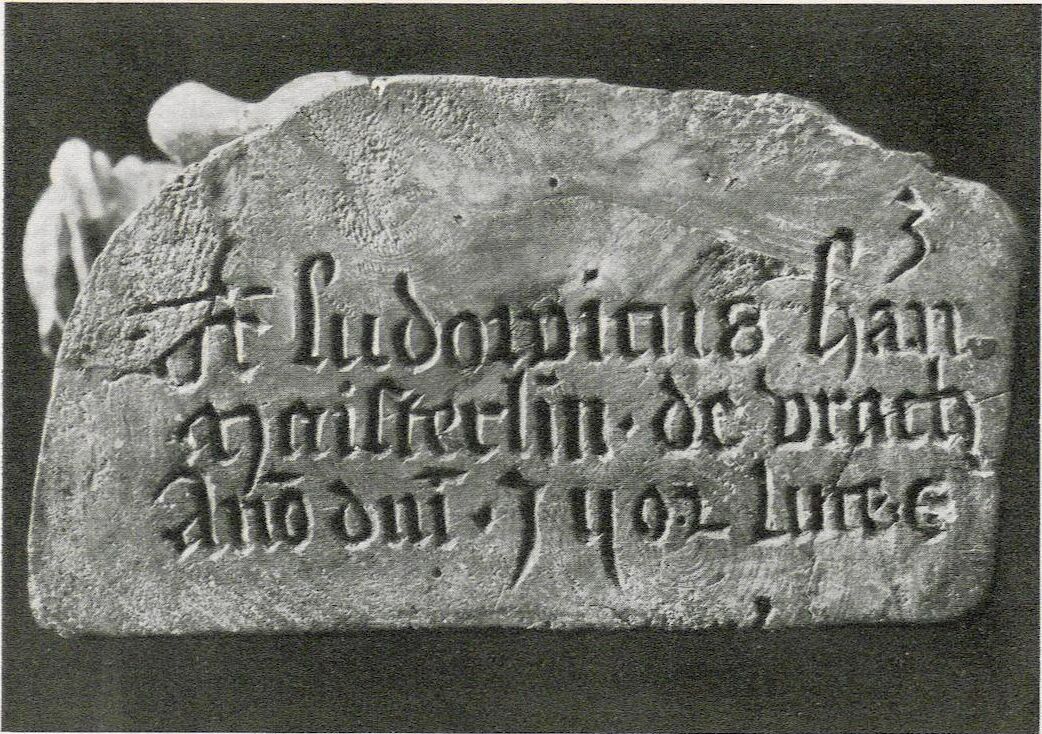 fr ludowicus han
maisterlin · de vrach
Ano dni · 1502